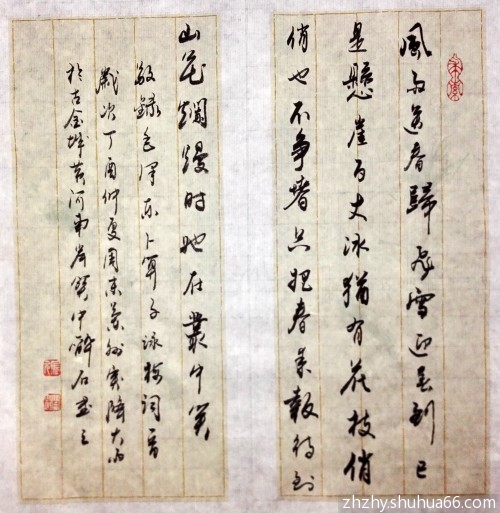 風雨送春歸飛雪迎春到已
是懸崖百丈冰猶有花枝俏
俏也不争春只把春来報待到
山花爛熳時她在叢中笑
敬錄毛澤东卜算子咏梅詞一首
歲次丁酉仲夏周末蘭州突降大雨
於古金城黃河南岸
zhzhyshuhua66.com